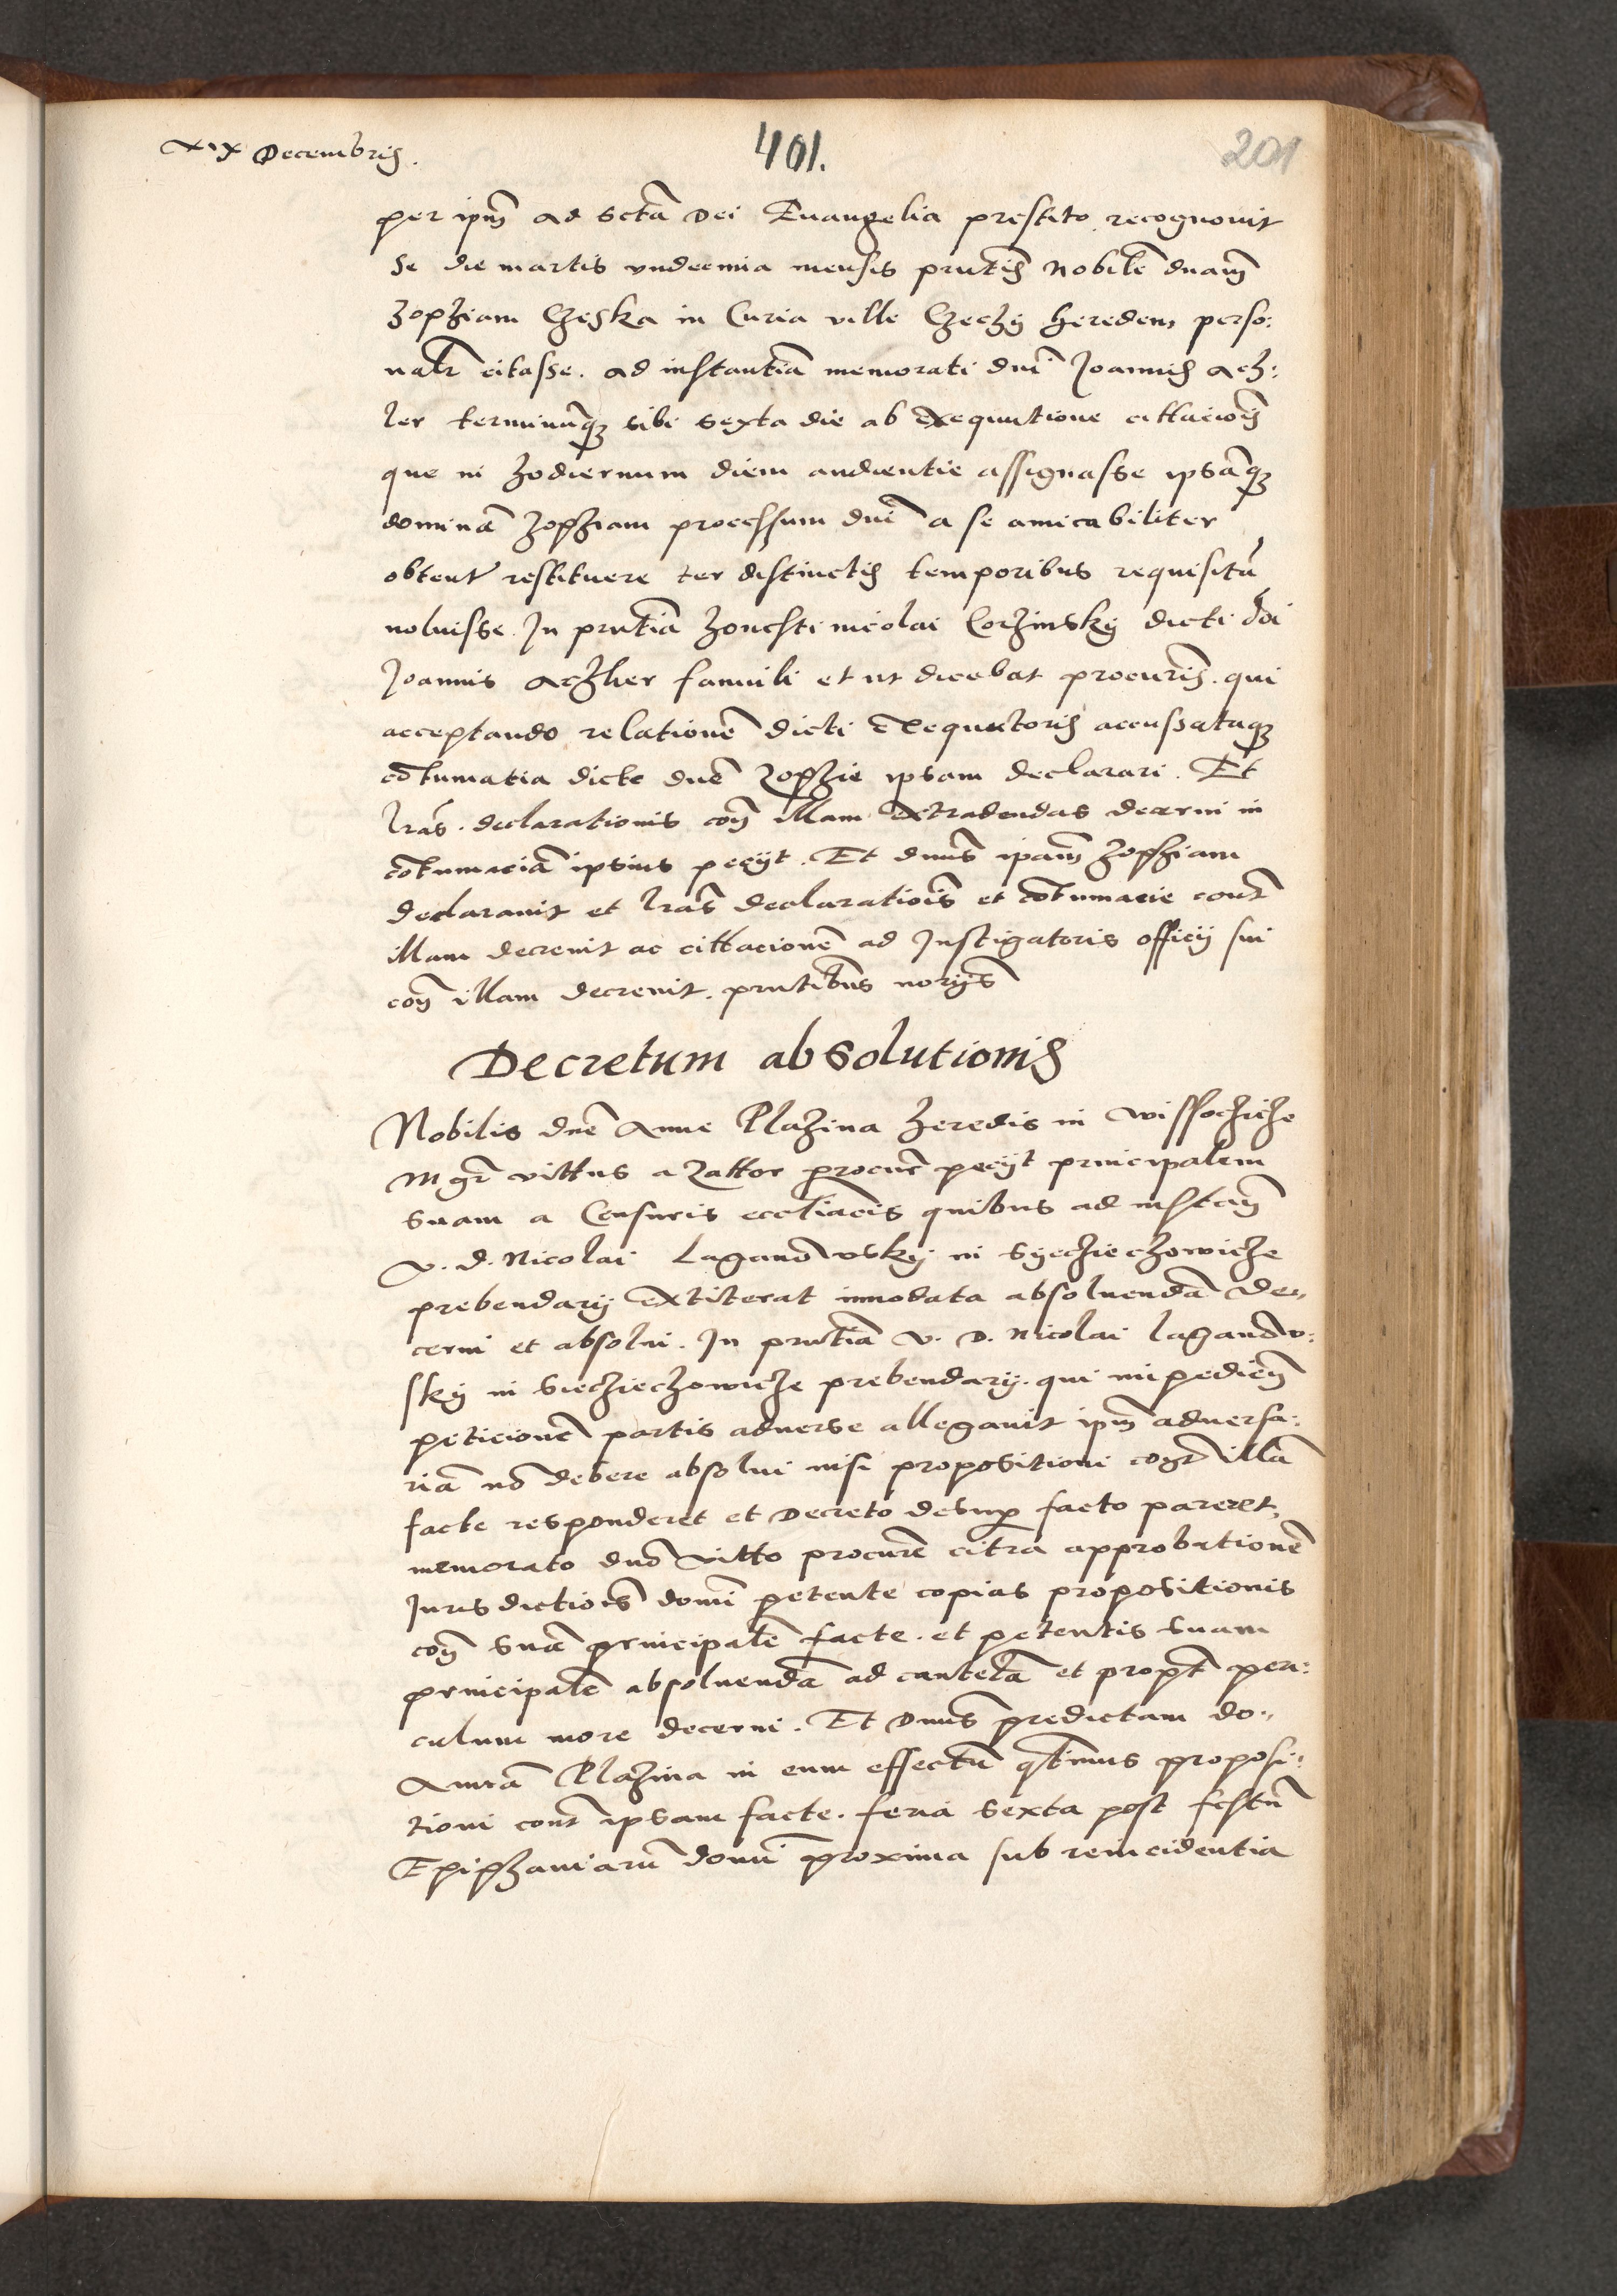 XIX Decembris.
401.
201
per ipm̃ ad sctã Dei Euangelia prestito recognouit
se die martis vndecima mensis pñtis Nobilẽ dnam̃
Zophiam Czeska in Curia ville Czechy heredem perso:
nalr̃ citasse. ad instantiã memorati dnĩ Joannis Acz:
ler terminũq; sibi sexta die ab exequutione cittacioñ
que in hodiernum diem audientie assignasse ipsãq;
dominã Zophiam processum dnĩ a se amicabiliter
obtent̃ restituere ter distinctis temporibus requisitã
noluisse. Jn pñtiã honesti nicolai Corzinsky dicti dñi
Joannis Aczher famuli et ut dicebat procuris̃. qui
acceptando relationẽ dicti exequutoris accussataq;
cõtumatia dicte dnẽ Zophie ipsam declarari. Et
lrãs. declarationis coñ illam extradendas decerni in
cõtumaciã ipsius peciit. Et dnus̃ ipam̃ Zophiam
declarauit et lrãs declaratiois̃ et cõtumacie cont̃
illam decreuit ac cittacionẽ ad Jnstigatoris officij sui
coñ illam decreuit. pñtibus norijs̃
Decretum absolutionis
Nobilis dnẽ Anne Plazina heredis in Wissochicze
Mgr̃ vittus a Zattor procur̃ peciit principalem
suam a Censuris eccliacis̃ quibus ad instam̃
V. d. Nicolai Laganowsky in Syecziechowicze
prebendarij extiterat innodata absoluendã de„
cerni et absolui. Jn pñtiã V. D. Nicolai laganow:
sky in Siecziechowicze prebendarij. qui impedieñ
peticionẽ partis aduerse allegauit ipm̃ aduersa:
riã nõ debere absolui nisi propositioni cont̃ illã
facte responderet et Decreto desup facto pareret,
memorato dnõ vitto procurẽ citra approbationẽ
Jurisdictiois̃ domĩ petente copias propositionis
coñ suã principalẽ facte. et petentis suam
principalẽ absoluendã ad cautelã et propt̃ peri:
culum more decerni. Et Dnus̃ predictam do„
Annã Plazina in eum effectũ q̃tinus proposi:
tioni cont̃ ipsam facte. feria sexta post festũ
Epiphaniarũ domĩ proxima sub reincidentia